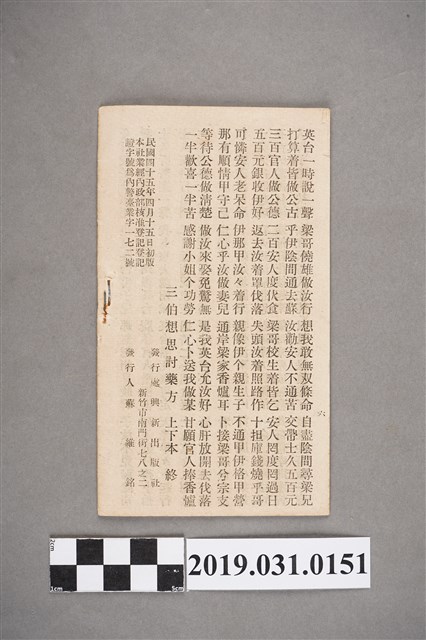 英台一時說一聲 梁哥饒雄做汝行 想我敢無双條命 自盡陰間尋梁兄
打算着皆做公古 乎伊陰間通去蘇 汝勸安人不通苦 交帶士久五百元
三百官人做公德 二百安人度伙食 梁哥校生着皆乞 安人罔度罔過日
五百元銀收伊好 返去汝着罩伐落 失頭汝着照路作 十担庫錢燒乎哥
可憐安人老呆命 伊那甲汝々着行 親像伊个親生子 不通甲伊格甲營
那有順情甲守己 仁心乎汝做妻兒 通岸梁家香爐耳 卜接梁哥兮宗支
等待公德做清楚 做汝來娶免驚無 是我英台允汝好 心肝放開去伐落
一半歡喜一半苦 感謝小姐个功勞 仁心卜送我做某 甘願官人捧香爐
三伯想思討藥方 上下本 終
民國四十五年四月十五日初版
本社業經內政部核准登記登記
證字號為內警臺業字一七二號
發行處 興新出版社
新竹市南門街七八之二
發行人 蘇維銘
六
2cm
1cm
5cm
2019.031.0151